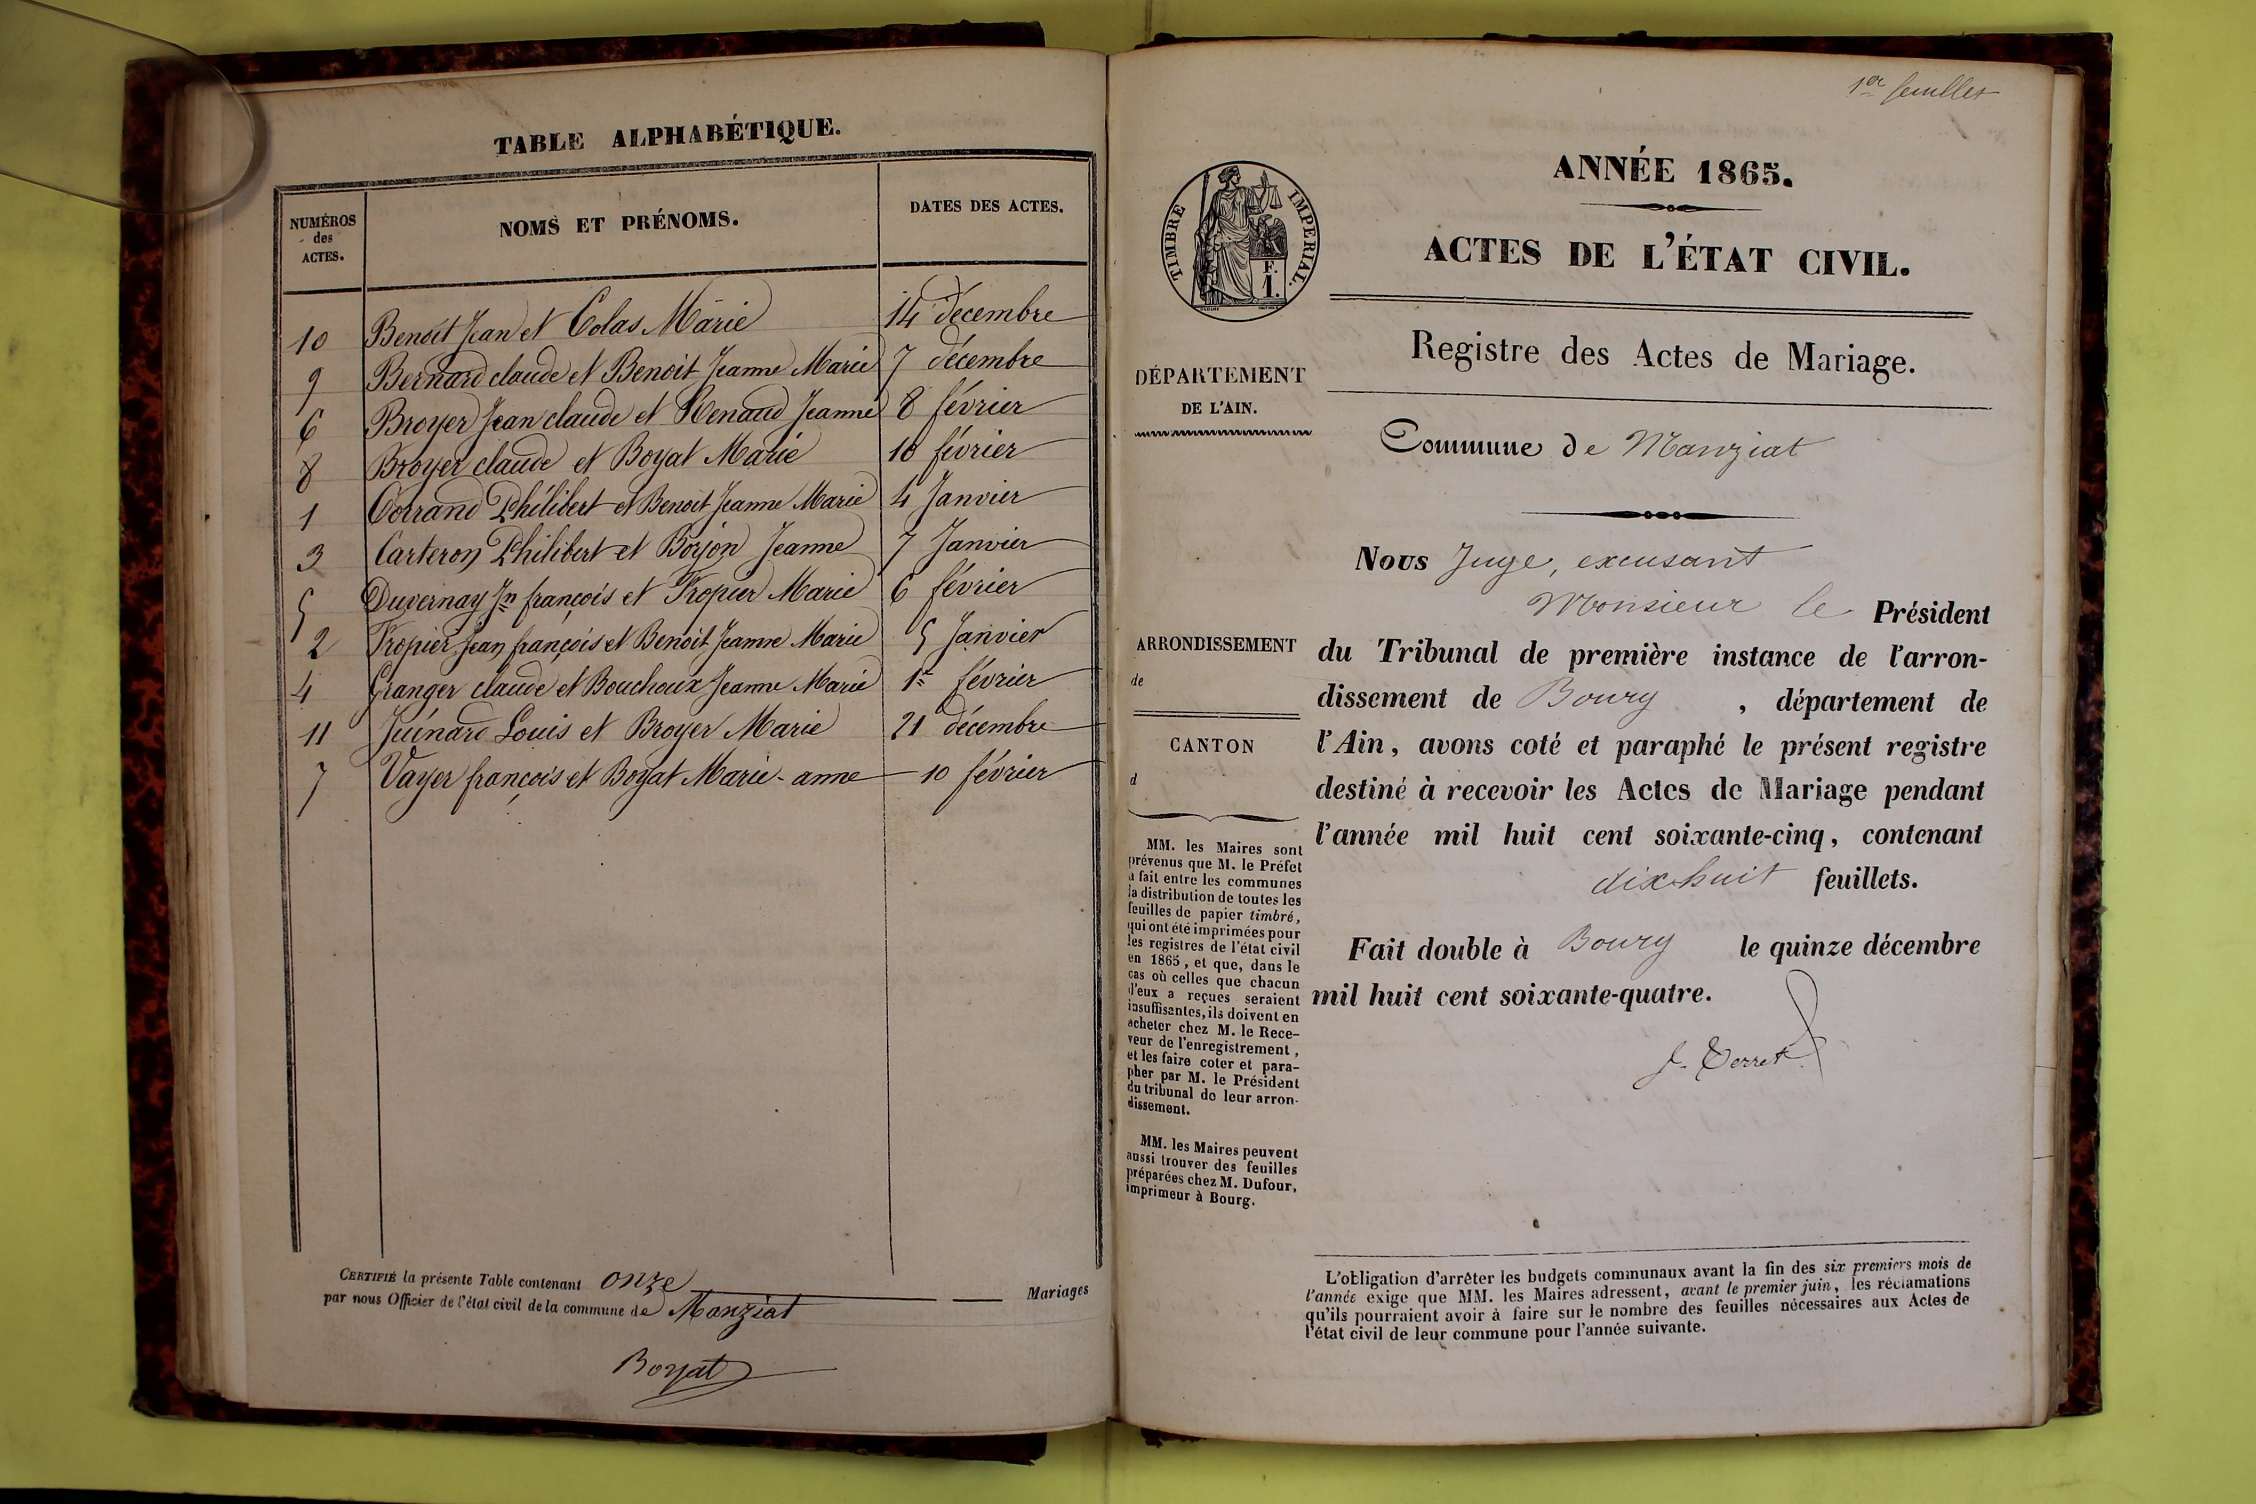 TABLE ALPHABÉTIQUE.
NUMÉROS des ACTES. NOMS ET PRÉNOMS. DATES DES ACTES.
10 Benoit Jean et Colas Marie 14 décembre
9 Bernard claude et Benoit Jeanne Marie 7 décembre
6 Broyer Jean claude et Renaud Jeanne 8 février
8 Broyer claude et Boyat Marie 10 février
1 Corrand Philibert et Benoit Jeanne Marie 4 Janvier
3 Carteron Philibert et Borjon Jeanne 7 Janvier
5 Duvernay Jn françois et Fropier Marie 6 février
2 Fropier Jean françois et Benoit Jeanne Marie 5 Janvier
4 Granger claude et Bouchoux Jeanne Marie 1er février
11 Juénard Louis et Broyer Marie 21 décembre
7 Vayer françois et Boyat Marie-anne 10 février
CERTIFIÉ la présente Table contenant onze Mariages
par nous Officier de l'état civil de la commune de Manziat
Boyat
1er feuillet
ANNÉE 1865.
ACTES DE L'ÉTAT CIVIL.
TIMBRE IMPERIAL.
F.
1.
Registre des Actes de Mariage.
DÉPARTEMENT
DE L'AIN.
Commune de Manziat
Nous Juge, excusant
Monsieur le Président
du Tribunal de première instance de l'arron-
dissement de Bourg , département de
l'Ain, avons coté et paraphé le présent registre
destiné à recevoir les Actes de Mariage pendant
l'année mil huit cent soixante-cinq, contenant
dix huit feuillets.
Fait double à Bourg le quinze décembre
mil huit cent soixante-quatre.
J. Terret
ARRONDISSEMENT
de
CANTON
d
MM. les Maires sont
prévenus que M. le Préfet
a fait entre les communes
la distribution de toutes les
feuilles de papier timbré,
qui ont été imprimées pour
les registres de l'état civil
en 1865, et que, dans le
cas où celles que chacun
d'eux a reçues seraient
insuffisantes, ils doivent en
acheter chez M. le Rece-
veur de l'enregistrement,
et les faire coter et para-
pher par M. le Président
du tribunal de leur arron-
dissement.
MM. les Maires peuvent
aussi trouver des feuilles
préparées chez M. Dufour,
imprimeur à Bourg.
L'obligation d'arrêter les budgets communaux avant la fin des six premiers mois de
l'année exige que MM. les Maires adressent, avant le premier juin, les réclamations
qu'ils pourraient avoir à faire sur le nombre des feuilles nécessaires aux Actes de
l'état civil de leur commune pour l'année suivante.